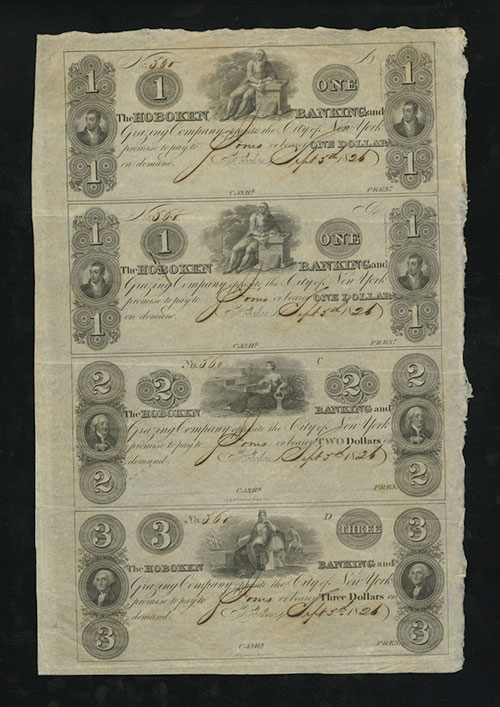 No. 560
1 1 ONE 1
The HOBOKEN BANKING and
Grazing Company opposite the City of New York
promise to pay to Jones or bearer ONE DOLLAR
on demand. Hoboken, Sept 5th 1826
1 1
CASHR. PREST.
No. 560
1 1 ONE 1
The HOBOKEN BANKING and
Grazing Company opposite the City of New York
promise to pay to Jones or bearer ONE DOLLAR
on demand. Hoboken, Sept 5th 1826
1 1
CASHR. PREST.
No. 560 C
2 2 2 2
The HOBOKEN BANKING and
Grazing Company opposite the City of New York
promise to pay to Jones or bearer TWO Dollars on
demand. Hoboken, Sept 5th 1826
2 2
CASHR. PREST.
No. 560 D
3 3 THREE 3
The HOBOKEN BANKING and
Grazing Company opposite the City of New York
promise to pay to Jones or bearer Three Dollars on
demand. Hoboken, Sept 5th 1826
3 3
CASHR. PREST.